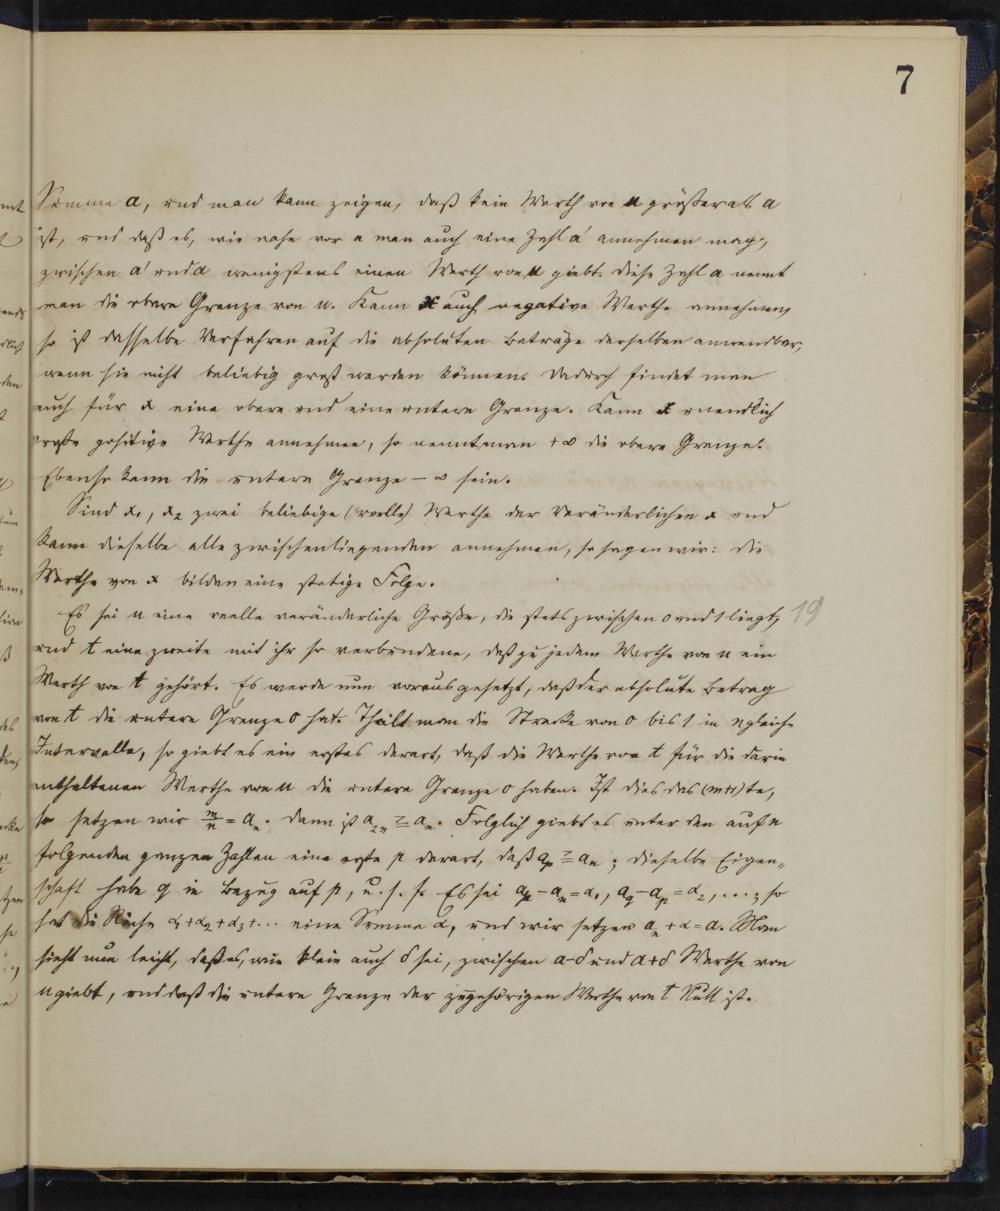 7
Summe a, und man kann zeigen, daß kein Werth von u größer als a
ist, und daß es, wie nahe vor a man auch eine Zahl a' annehmen mag,
zwischen a' und a wenigstens einen Werth von u giebt. Diese Zahl a nennt
man die obere Grenze von u. Kann x auch negative Werthe annehmen,
so ist dasselbe Verfahren auf die absoluten Beträge derselben anwendbar,
wenn sie nicht beliebig groß werden können. Dadurch findet man
auch für x eine obere und eine untere Grenze. Kann x unendlich
große positive Werthe annehmen, so nennt man +∞ die obere Grenze.
Ebenso kann die untere Grenze -∞ sein.
Sind x₁, x₂ zwei beliebige (reelle) Werthe der Veränderlichen x und
kann dieselbe alle zwischenliegenden annehmen, so sagen wir: die
Werthe von x bilden eine stetige Folge.
Es sei u eine reelle veränderliche Größe, die stets zwischen 0 und 1 liegt, 19
und t eine zweite mit ihr so verbundene, daß zu jedem Werthe von u ein
Werth von t gehört. Es werde nun vorausgesetzt, daß der absolute Betrag
von t die untere Grenze 0 hat. Theilt man die Strecke von 0 bis 1 in n gleiche
Intervalle, so giebt es ein erstes derart, daß die Werthe von t für die darin
enthaltenen Werthe von u die untere Grenze 0 haben. Ist dies das (m+1)te,
so setzen wir m/n = aₙ. Dann ist a₂ₙ ≧ aₙ. Folglich giebt es unter den auf n
folgenden ganzen Zahlen eine erste p derart, daß aₚ ≧ aₙ; dieselbe Eigen-
schaft habe q in Bezug auf p, u. s. f. Es sei aₚ - aₙ = α₁, a_q - aₚ = α₂, ...; so
hat die Reihe α₁+α₂+α₃+... eine Summe α, und wir setzen aₙ + α = a. Man
sieht nun leicht, daß es, wie klein auch δ sei, zwischen a-δ und a+δ Werthe von
u giebt, und daß die untere Grenze der zugehörigen Werthe von t Null ist.